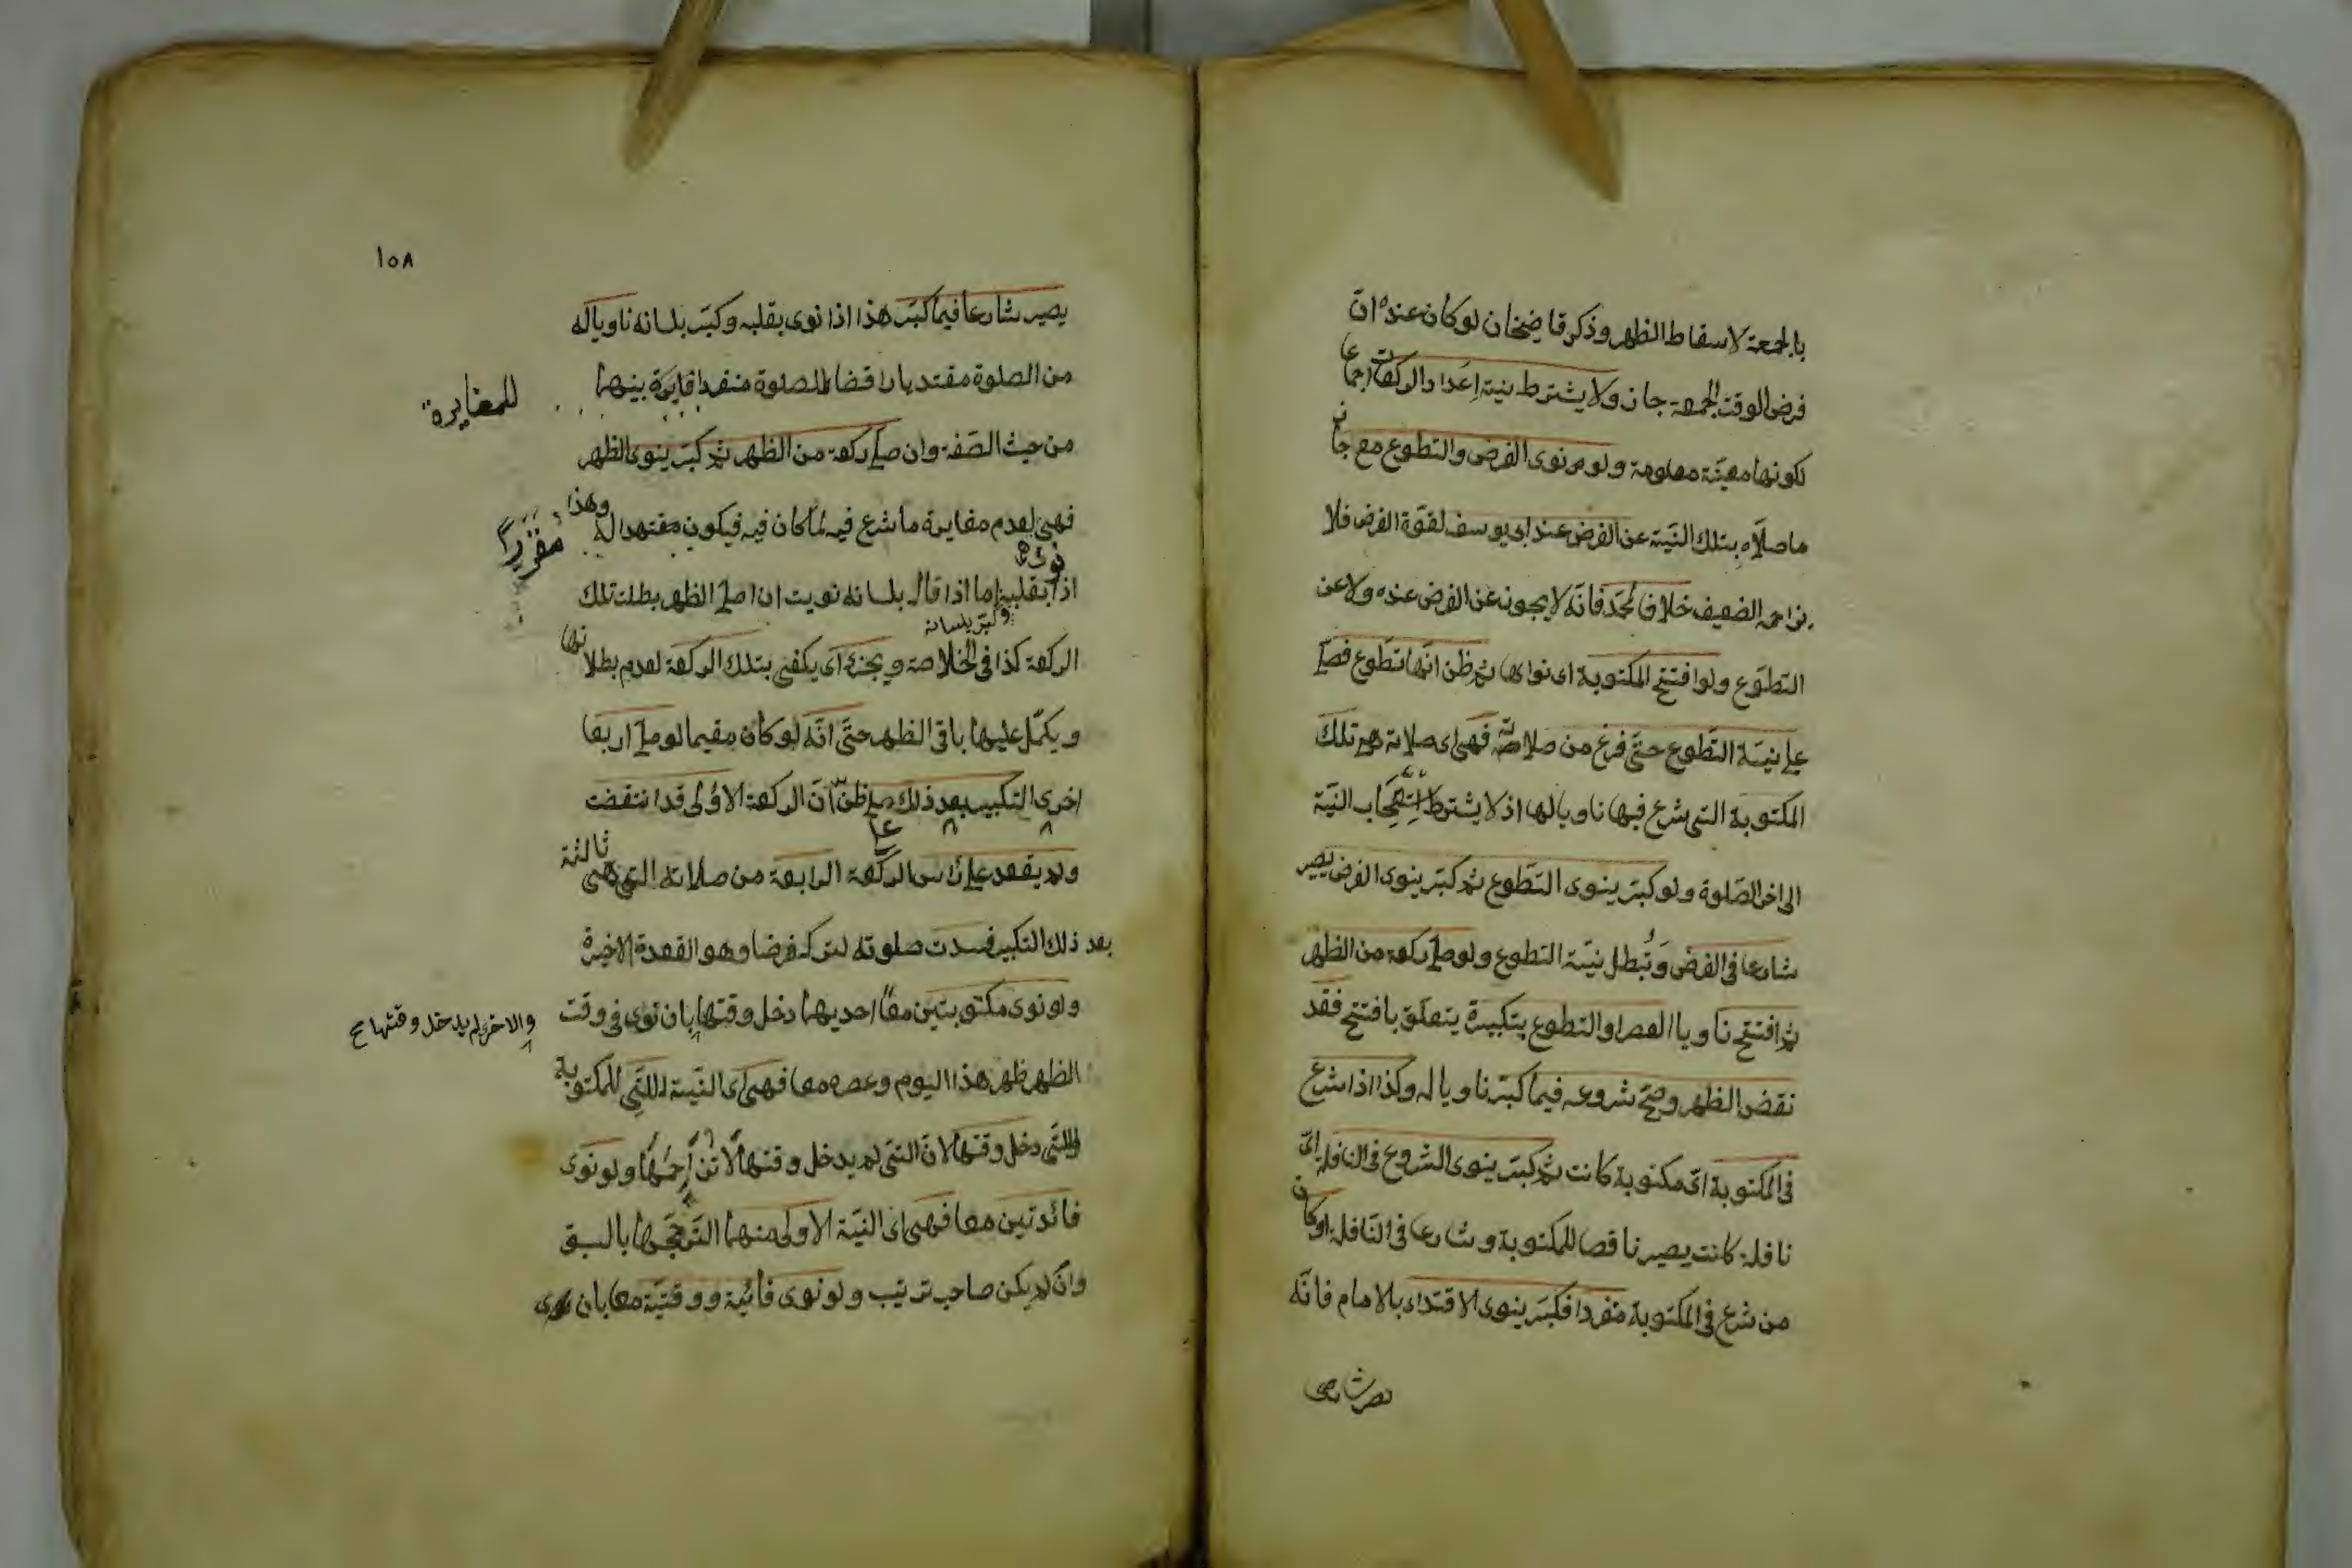 بالجمعة لاسقاط الظهر وذكر قاضيخان لو كان عنده ان
فرض الوقت الجمعة جاز ولا يشترط نية اعداد الركعات اجماعا
لكونها معيّنة معلومة ولو نوى الفرض والتطوع معا جاز
ما صلاه بتلك النيّة عن الفرض عند ابى يوسف لقوّة الفرض فلا
يزاحمه الضعيف خلافا لمحمّد فانّه لا يجوز عن الفرض عنده ولا عن
التطوّع ولو افتتح المكتوبة اى نواها ثم ظن انّها تطوع فصلّى
على نيّة التّطوع حتّى فرغ من صلاته فهى اى صلاته هى تلك
المكتوبة التى شرع فيها ناويا لها اذ لا يشترط استصحاب النيّة
الى اخر الصّلوة ولو كبّر ينوى التّطوع ثم كبّر ينوى الفرض يصير
شارعا فى الفرض وتُبطل نيّة التطوع ولو صلّى ركعة من الظهر
ثم افتتح ناويا العصر او التطوع بتكبيرة يتعلّق بافتتح فقد
نقض الظهر وصحّ شروعه فيما كبّر ناويا له وكذا اذا شرع
فى المكتوبة اىّ مكتوبة كانت ثم كبّر ينوى الشروع فى النافلة اىّ
نافلة كانت يصير ناقصا للمكتوبة وشارعا فى النّافلة او كان
من شرع فى المكتوبة منفردا فكبّر ينوى الاقتداء بالامام فانّه
يصير شارعا
١٥٨
يصير شارعا فيما كبّر هذا اذا نوى بقلبه وكبّر بلسانه ناويا له
من الصلوة مقتديا رافضا للصلوة منفردا بينهما
للمغايرة
من حيث الصّفة وان صلّى ركعة من الظهر ثم كبّر ينوى الظهر
فهى لعدم مغايرة ما شرع فيه لما كان فيه فيكون له وهذا
مقرّرا
نوى
اذا بقلبه اما اذا قال بلسانه نويت ان اصلّى الظهر بطلت تلك
وكبّر بلسانه
الركعة كذا فى الخلاصة ويجزء اى يكفى بتلك الركعة لعدم بطلانها
ويكمّل عليها باقى الظهر حتّى انّه لو كان مقيما لو صلّى اربعا
اخرى التكبير بعد ذلك على ظنّ انّ الركعة الاولى قد انتقضت
على
ولم يقعد على رأس الركعة الرابعة من صلاته التى هى ثالثة
بعد ذلك التكبير فسدت صلوته لتركه فرضا وهو القعدة الاخيرة
ولو نوى مكتوبتين معًا احديهما دخل وقتها بان نوى فى وقت
والاخرى لم يدخل وقتها صح
الظهر ظهر هذا اليوم وعصره معا فهى اى النيّة للمكتوبة
التّى دخل وقتها لانّ التى لم يدخل وقتها لا تزاحمها ولو نوى
فائتتين معا فهى اى النيّة الاولى منهما لترجّحها بالسبق
وان لم يكن صاحب ترتيب ولو نوى فائتة ووقتيّة معا بان نوى